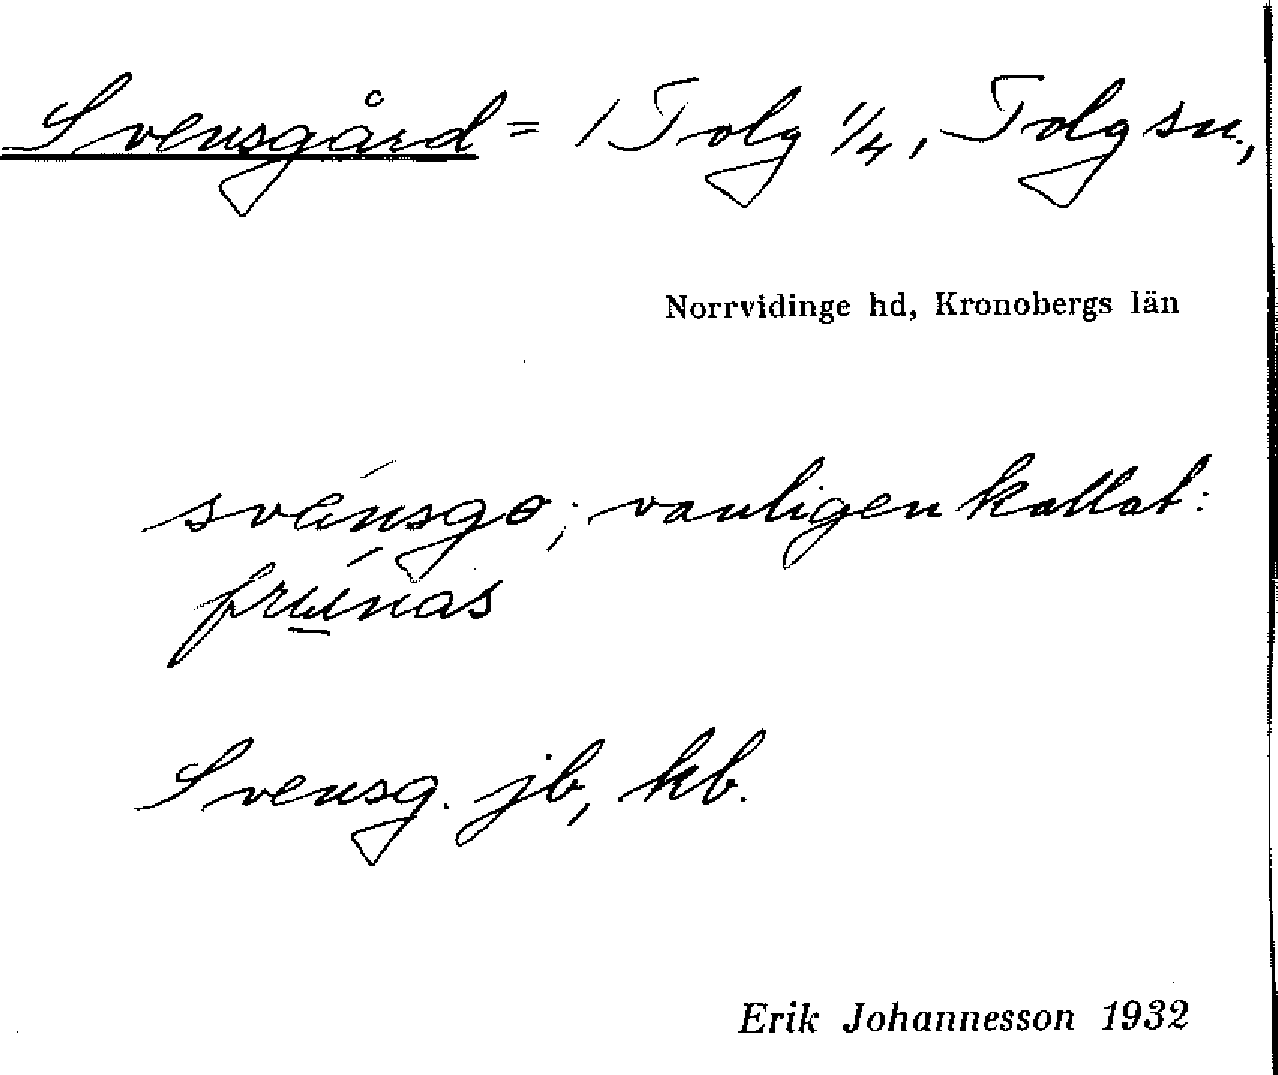 Svensgård = / Tolg 1/4, Tolg sn.,
Norrvidinge hd, Kronobergs län
svänsgo; vanligen kallat:
frúnas
Svensg. jb, kb.
Erik Johannesson 1932